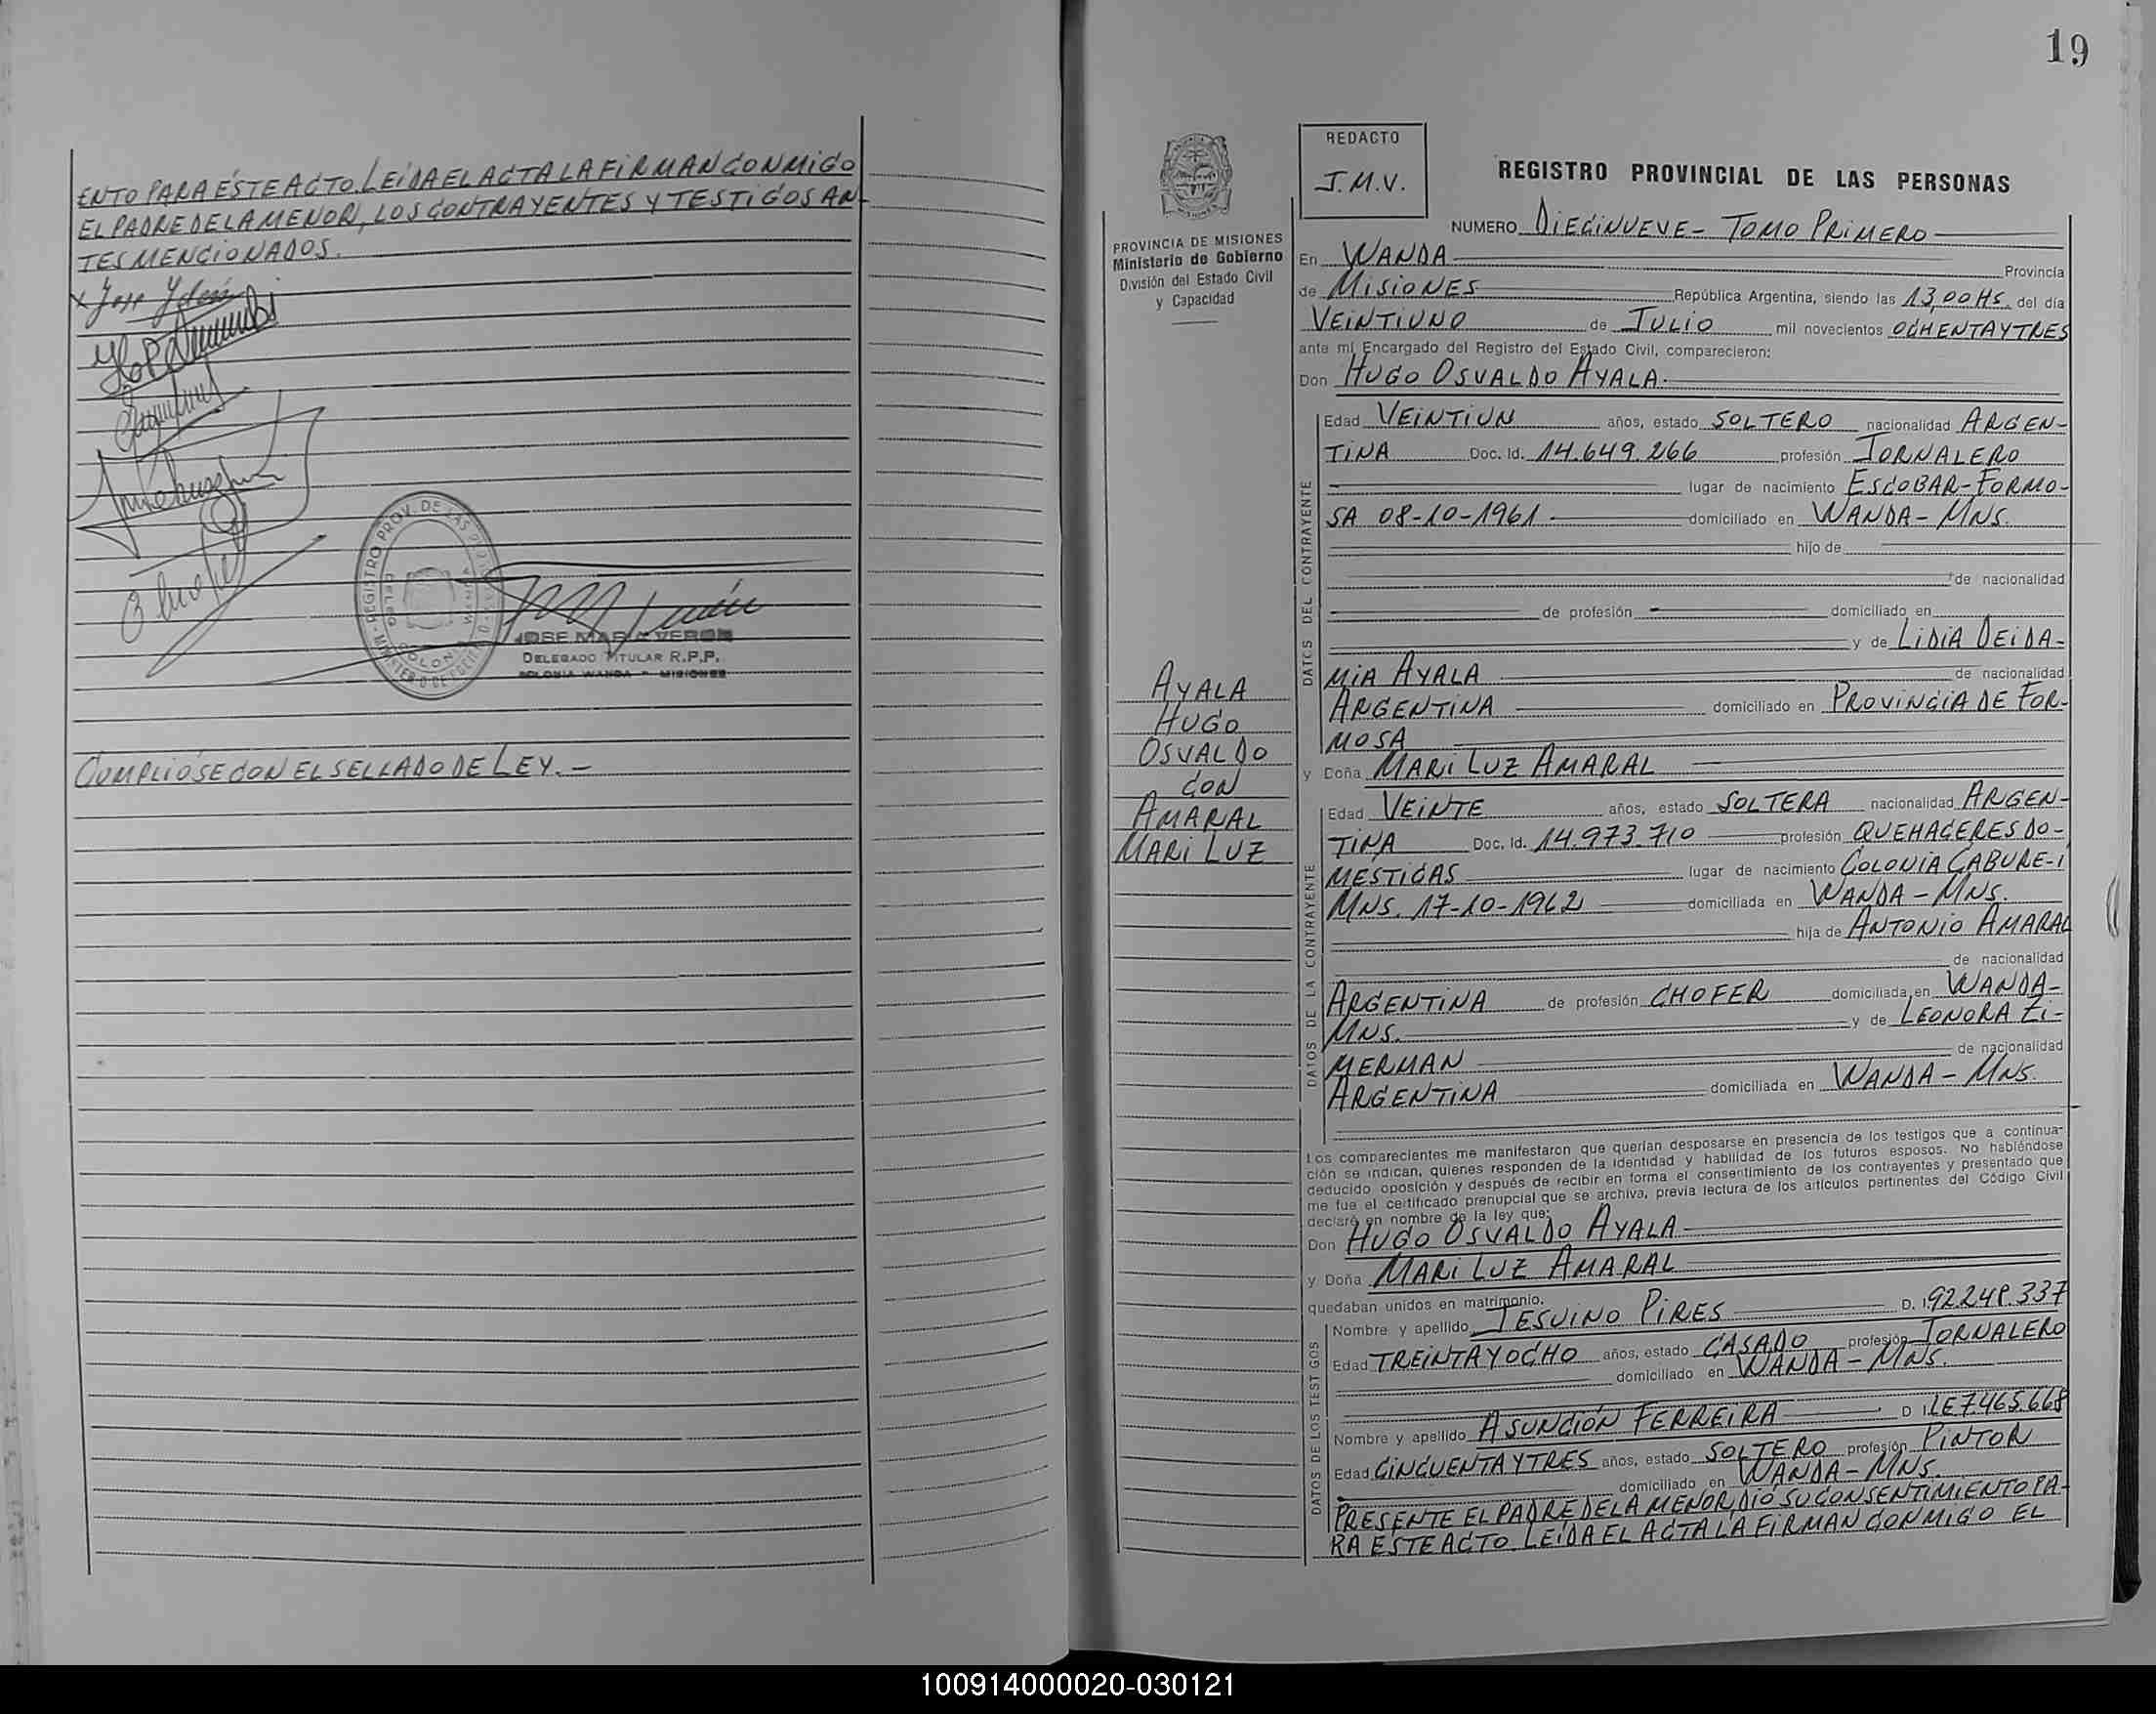 ENTO PARA ÉSTE ACTO. LEÍDA EL ACTA LA FIRMAN CONMIGO
EL PADRE DE LA MENOR, LOS CONTRAYENTES Y TESTIGOS AN-
TES MENCIONADOS.
JOSE MARIA VERON
DELEGADO TITULAR R.P.P.
COLONIA WANDA - MISIONES
CUMPLIÓSE CON EL SELLADO DE LEY. -
19
PROVINCIA DE MISIONES
Ministerio de Gobierno
División del Estado Civil
y Capacidad
AYALA
HUGO
OSVALDO
CON
AMARAL
MARI LUZ
REDACTO
J.M.V.
REGISTRO PROVINCIAL DE LAS PERSONAS
NUMERO DIECINUEVE - TOMO PRIMERO
En WANDA Provincia
de MISIONES República Argentina, siendo las 13,00 HS. del día
VEINTIUNO de JULIO mil novecientos OCHENTA Y TRES
ante mí Encargado del Registro del Estado Civil, comparecieron:
Don HUGO OSVALDO AYALA.
DATOS DEL CONTRAYENTE
Edad VEINTIUN años, estado SOLTERO nacionalidad ARGEN-
TINA Doc. Id. 14.649.266 profesión JORNALERO
lugar de nacimiento ESCOBAR-FORMO-
SA 08-10-1961 domiciliado en WANDA - MNS.
hijo de
de nacionalidad
de profesión domiciliado en
y de LIDIA DEIDA-
MIA AYALA de nacionalidad
ARGENTINA domiciliado en PROVINCIA DE FOR-
MOSA
y Doña MARI LUZ AMARAL
DATOS DE LA CONTRAYENTE
Edad VEINTE años, estado SOLTERA nacionalidad ARGEN-
TINA Doc. Id. 14.973.710 profesión QUEHACERES DO-
MESTICAS lugar de nacimiento COLONIA CABURE-I
MNS. 17-10-1962 domiciliada en WANDA - MNS.
hija de ANTONIO AMARAL
de nacionalidad
ARGENTINA de profesión CHOFER domiciliada en WANDA-
MNS. y de LEONORA ZI-
MERMAN de nacionalidad
ARGENTINA domiciliada en WANDA - MNS.
Los comparecientes me manifestaron que querían desposarse en presencia de los testigos que a continua-
ción se indican, quienes responden de la identidad y habilidad de los futuros esposos. No habiéndose
deducido oposición y después de recibir en forma el consentimiento de los contrayentes y presentado que
me fue el certificado prenupcial que se archiva, previa lectura de los artículos pertinentes del Código Civil
declaré en nombre de la ley que:
Don HUGO OSVALDO AYALA
y Doña MARI LUZ AMARAL
quedaban unidos en matrimonio.
DATOS DE LOS TESTIGOS
Nombre y apellido JESUINO PIRES D. I. 92.248.337
Edad TREINTA Y OCHO años, estado CASADO profesión JORNALERO
domiciliado en WANDA - MNS.
Nombre y apellido ASUNCIÓN FERREIRA D I. LE 7.465.668
Edad CINCUENTA Y TRES años, estado SOLTERO profesión PINTOR
domiciliado en WANDA - MNS.
PRESENTE EL PADRE DE LA MENOR DIÓ SU CONSENTIMIENTO PA-
RA ÉSTE ACTO. LEÍDA EL ACTA LA FIRMAN CONMIGO EL
100914000020-030121